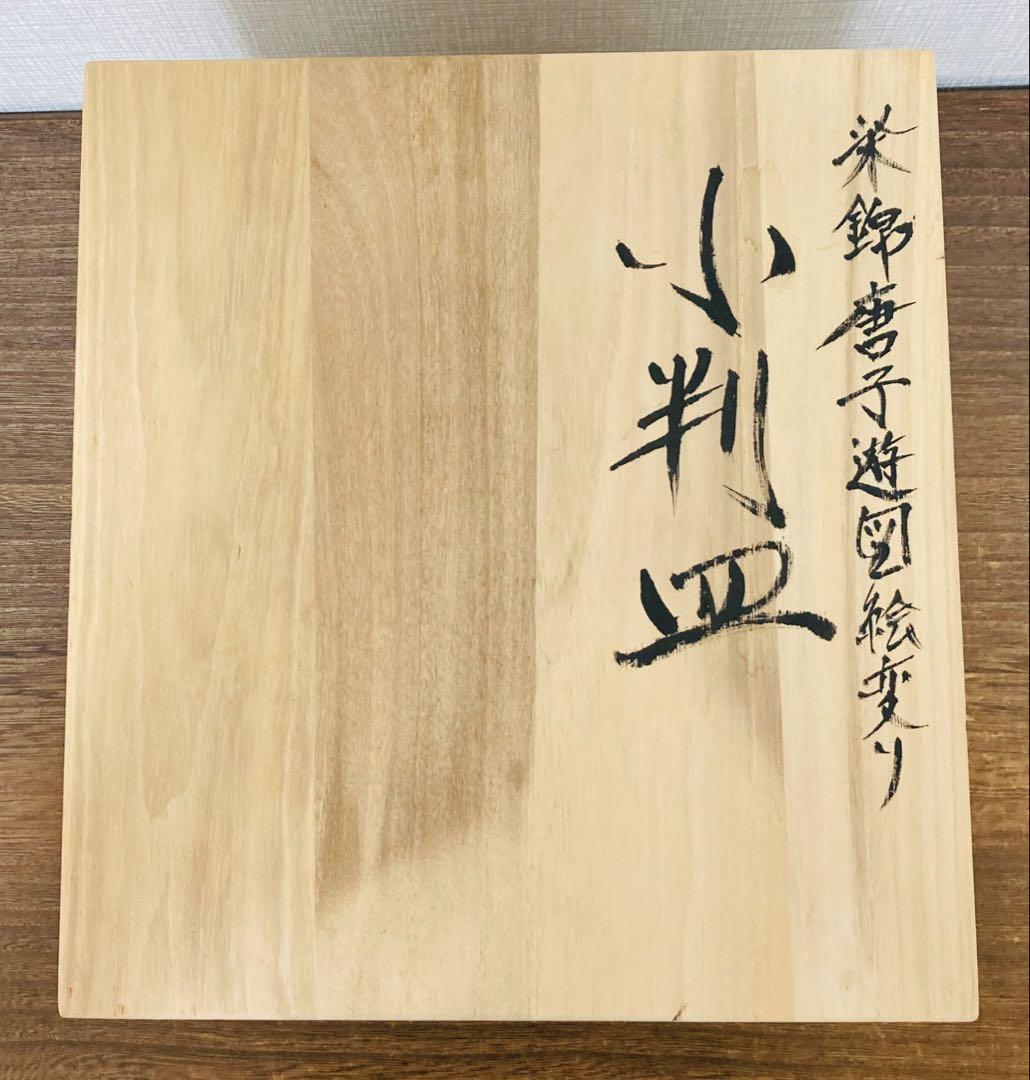 染錦唐子遊図絵変り
小判皿